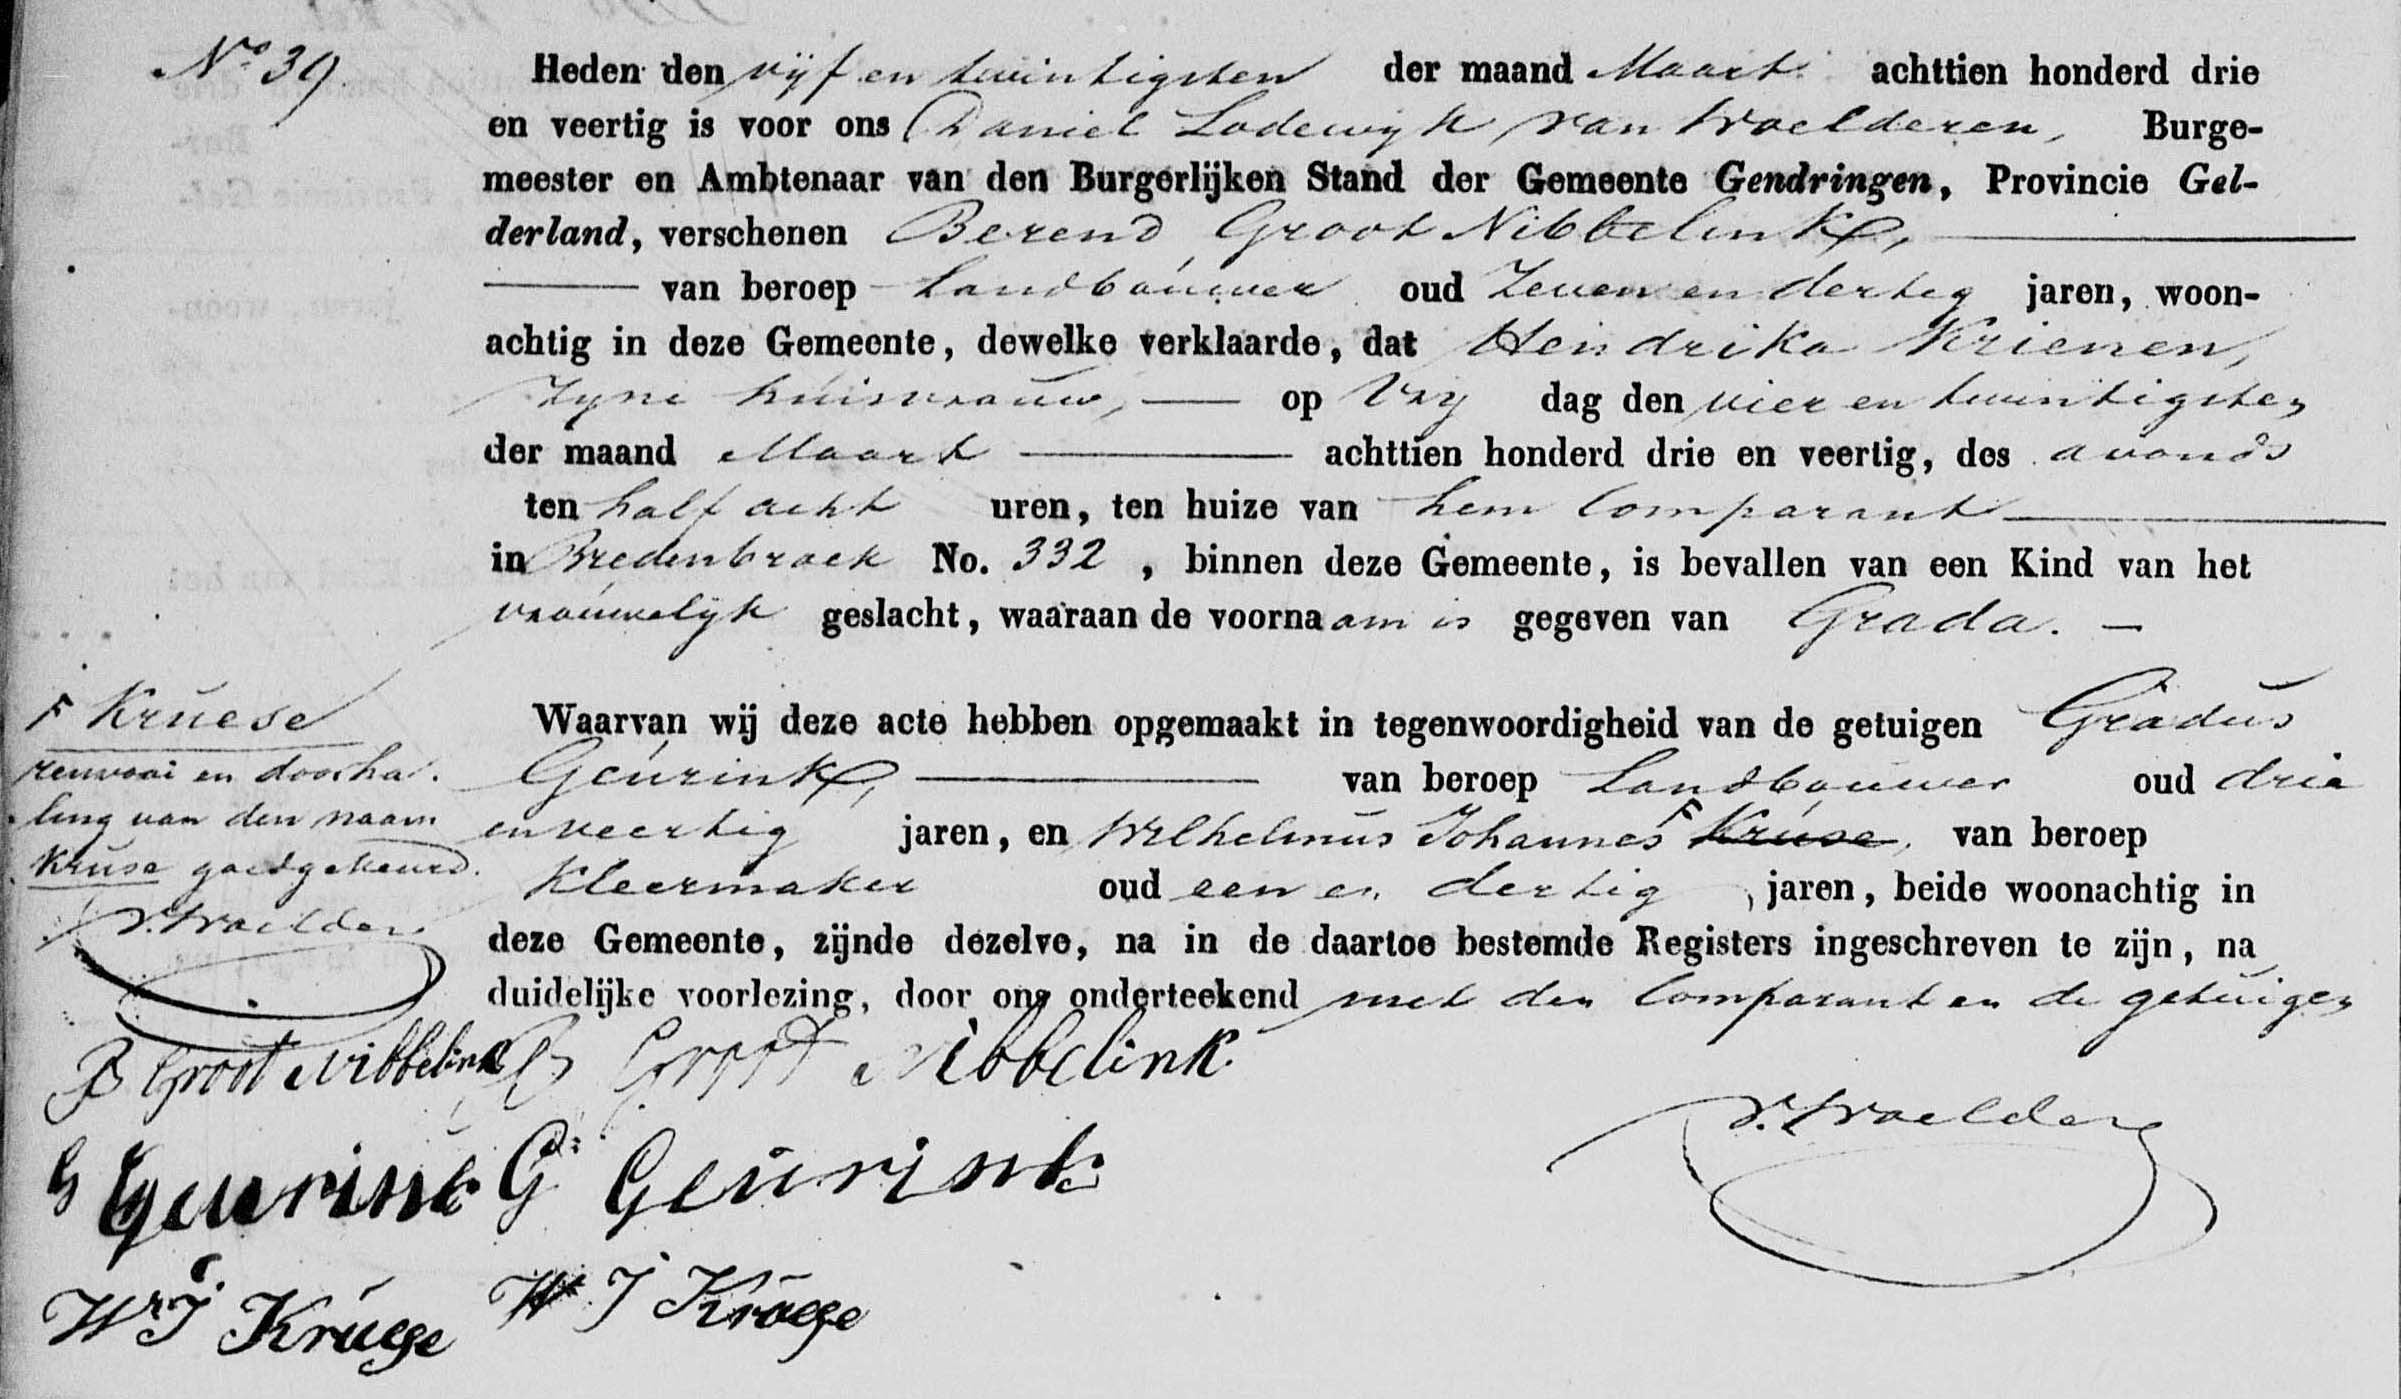 No 39.
Heden den vijf en twintigsten der maand Maart achttien honderd drie
en veertig is voor ons Daniel Lodewijk van Woelderen, Burge-
meester en Ambtenaar van den Burgerlijken Stand der Gemeente Gendringen, Provincie Gel-
derland, verschenen Berend Groot Nibbelink,
van beroep Landbouwer oud Zeven en dertig jaren, woon-
achtig in deze Gemeente, dewelke verklaarde, dat Hendrika Krienen,
Zyne huisvrouw, op Vry dag den vier en twintigsten
der maand Maart achttien honderd drie en veertig, des avonds
ten half acht uren, ten huize van hem Comparant
in Bredenbroek No. 332, binnen deze Gemeente, is bevallen van een Kind van het
vrouwelijk geslacht, waaraan de voornaam is gegeven van Grada.
Waarvan wij deze acte hebben opgemaakt in tegenwoordigheid van de getuigen Gradus
Geurink, van beroep Landbouwer oud drie
en veertig jaren, en Wilhelmus Johannes Kruse, van beroep
Kleermaker oud een en dertig jaren, beide woonachtig in
deze Gemeente, zijnde dezelve, na in de daartoe bestemde Registers ingeschreven te zijn, na
duidelijke voorlezing, door ons onderteekend met den Comparant en de getuigen
F Kruese
renvooi en doorha-
ling van den naam
Kruse goedgekeurd.
v. Woelderen
B Groot Nibbelink
G Geurink
Wr J Kruese
B Groot Nibbelink
G: Geurink
W J Kruese
v. Woelderen